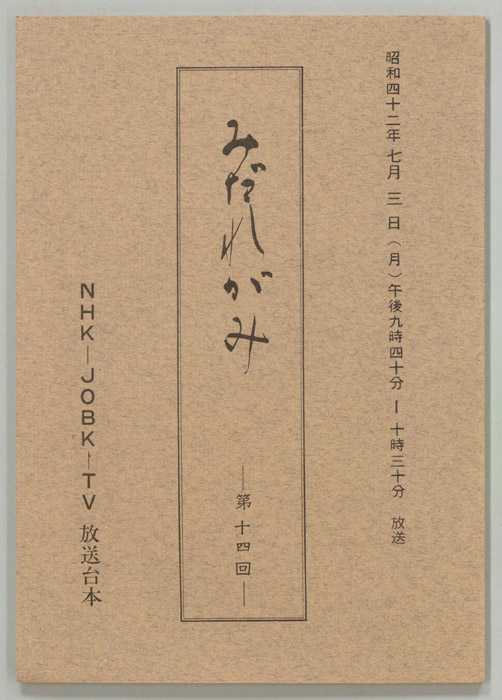 昭和四十二年七月三日（月）午後九時四十分ー十時三十分 放送
みだれがみ
―第十四回―
NHK―JOBK―TV放送台本